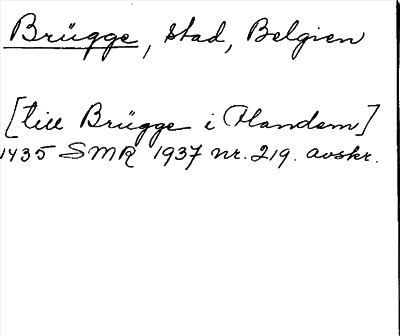 Brügge, stad, Belgien
[till Brügge i Flandern]
1435 SMR 1937 nr. 219. avskr.